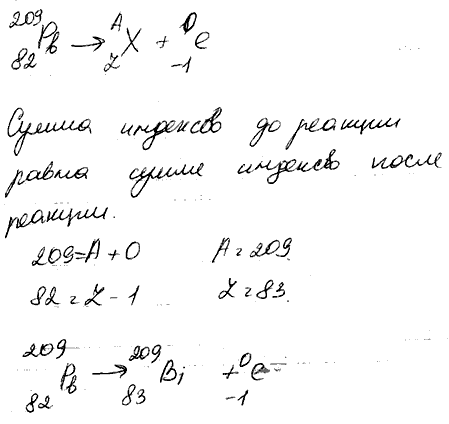 ²⁰⁹₈₂Pb → ᴬ_Z X + ⁰₋₁e
Сумма индексов до реакции
равна сумме индексов после
реакции.
209=A+0 A=209.
82=Z-1 Z=83.
²⁰⁹₈₂Pb → ²⁰⁹₈₃Bi + ⁰₋₁e